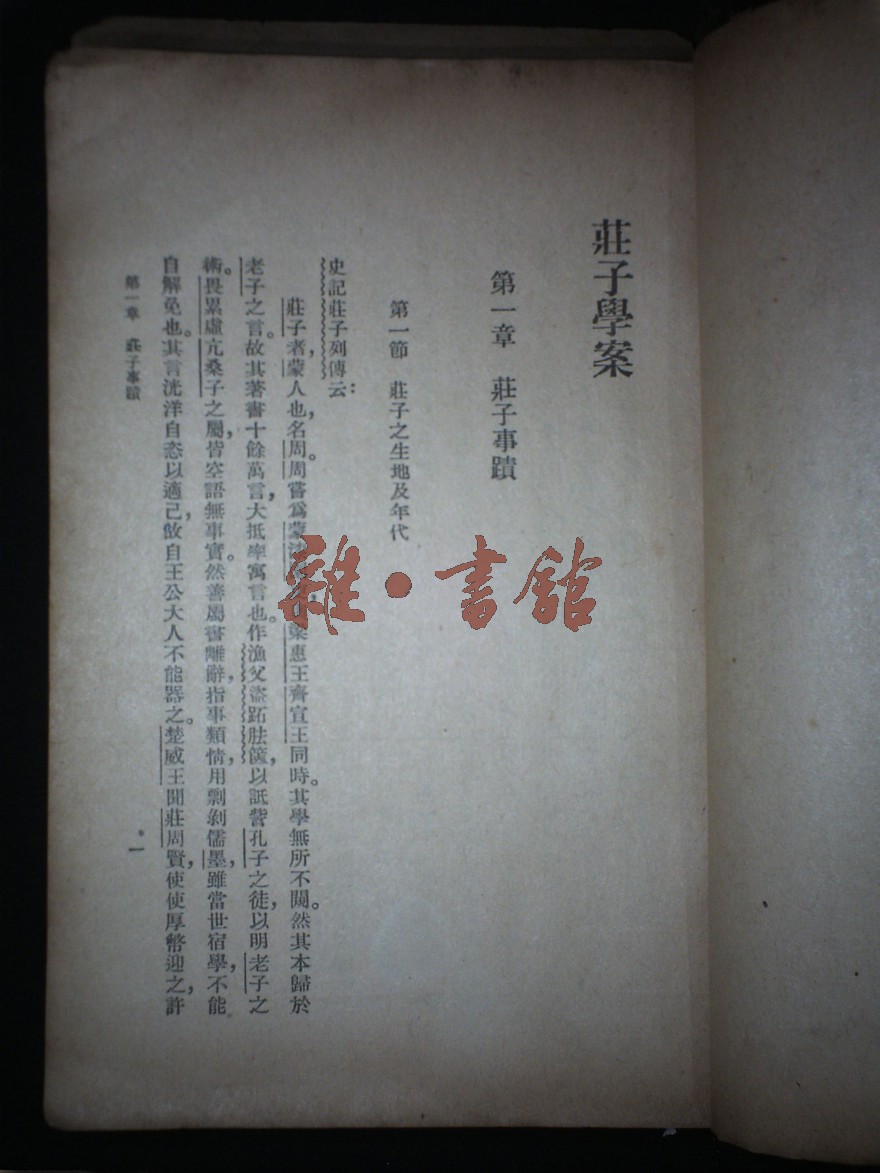 莊子學案
第一章 莊子事蹟
第一節 莊子之生地及年代
史記莊子列傳云：
莊子者，蒙人也，名周。周嘗爲蒙梁惠王齊宣王同時。其學無所不闚。然其本歸於
老子之言。故其著書十餘萬言，大抵率寓言也。作漁父盜跖胠篋，以詆訾孔子之徒，以明老子之
術。畏累虛亢桑子之屬，皆空語無事實。然善屬書離辭，指事類情，用剽剝儒墨，雖當世宿學，不能
自解免也。其言洸洋自恣以適己，故自王公大人不能器之。楚威王聞莊周賢，使使厚幣迎之，許
第一章 莊子事蹟
一
雜·書館